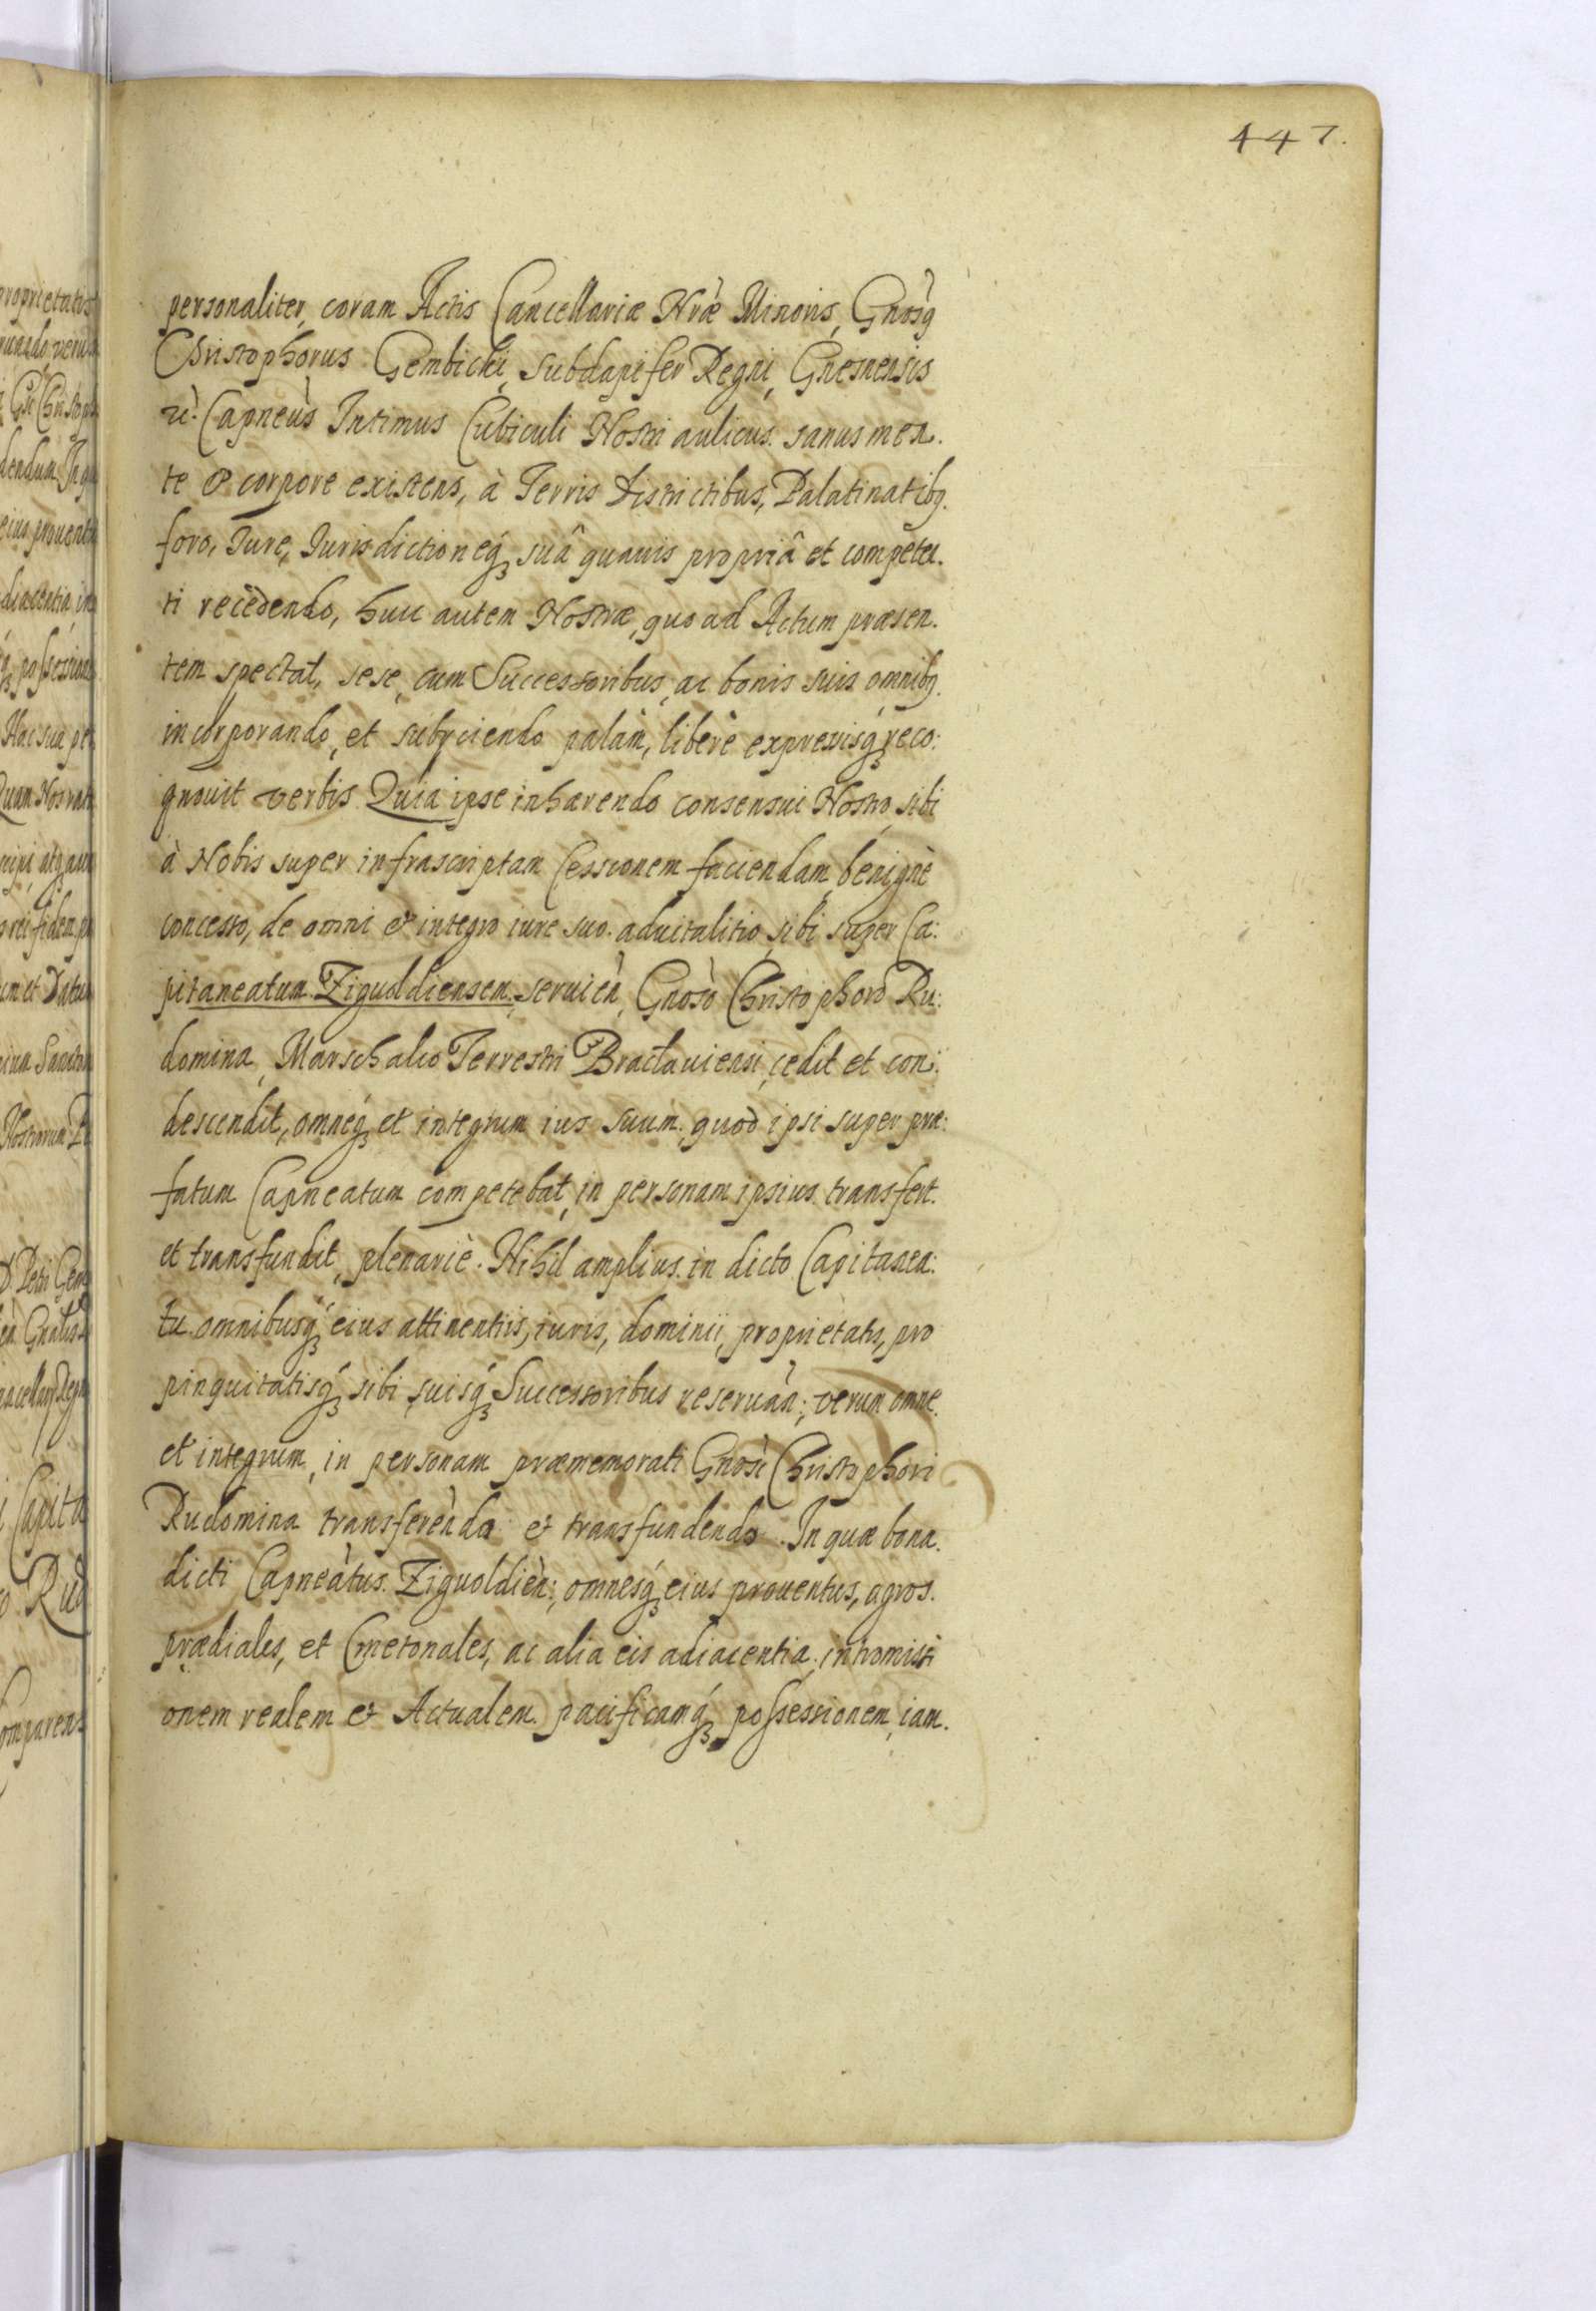 447.
personaliter, coram Actis Cancellariæ Nræ Minoris, Gnosq
Christophorus Gembicki, Subdapifer Regni, Gnesnensis
rè. Capneùs Intimus Cubiculi Nostri aulicus. sanus men.
te & corpore existens, à Terris Districtibus, Palatinatibq.
foro, Iure, Iurisdictioneq; suâ quauis propriâ et competen.
ti recedendo, huic autem Nostræ, quo ad Actum præsen.
tem spectat, sese, cum Successoribus, ac bonis suis omnibq.
incorporando, et subyciendo palàm, liberè expressisq; reco:
gnouit verbis. Quia ipse inhærendo consensui Nostro, sibi
à Nobis super infrascriptam Cessionem faciendam, benignè
concesso, de omni & integro iure suo. aduitalitio, sibi super Ca:
pitaneatum Ziguoldiensem, seruièn, Gnosò Christophoro Ru:
domina, Marschalco Terrestri Braclauiensi, cedit et con:
descendit, omneq; et integrum ius suum, quod ipsi super præ:
fatum Capneatum competebat, in personam ipsius transfert.
et transfundit, plenariè. Nihil amplius. in dicto Capitanea:
tu. omnibusq; eius attinentiis, iuris, dominii, proprietatis, pro
pinquitatisq; sibi, suisq; Successoribus reseruàn:, verum omne.
et integrum, in personam præmemorati Gnosì Christophori
Rudomina transferèndo & transfundendo. In quæ bona.
dicti Capneàtus. Ziguoldièn:, omnesq; eius prouentus, agros.
prædiales, et Cmetonales, ac alia eis adiacentia, intromissi
onem realem & Actualem. pacificamq; possessionem, iam.